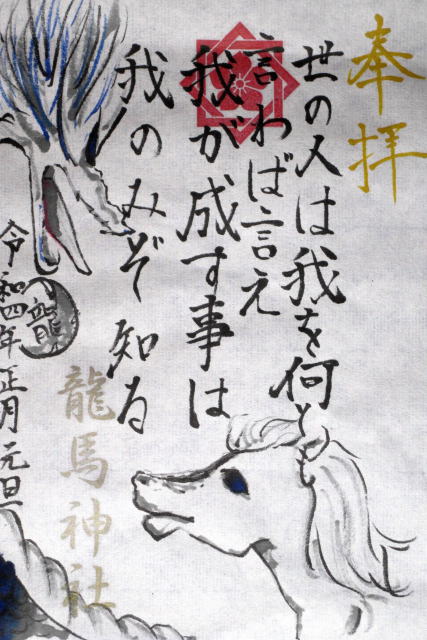 奉拝
世の人は我を何と
言わば言え
我が成す事は
我のみぞ知る
龍馬神社
龍
令和四年正月元旦